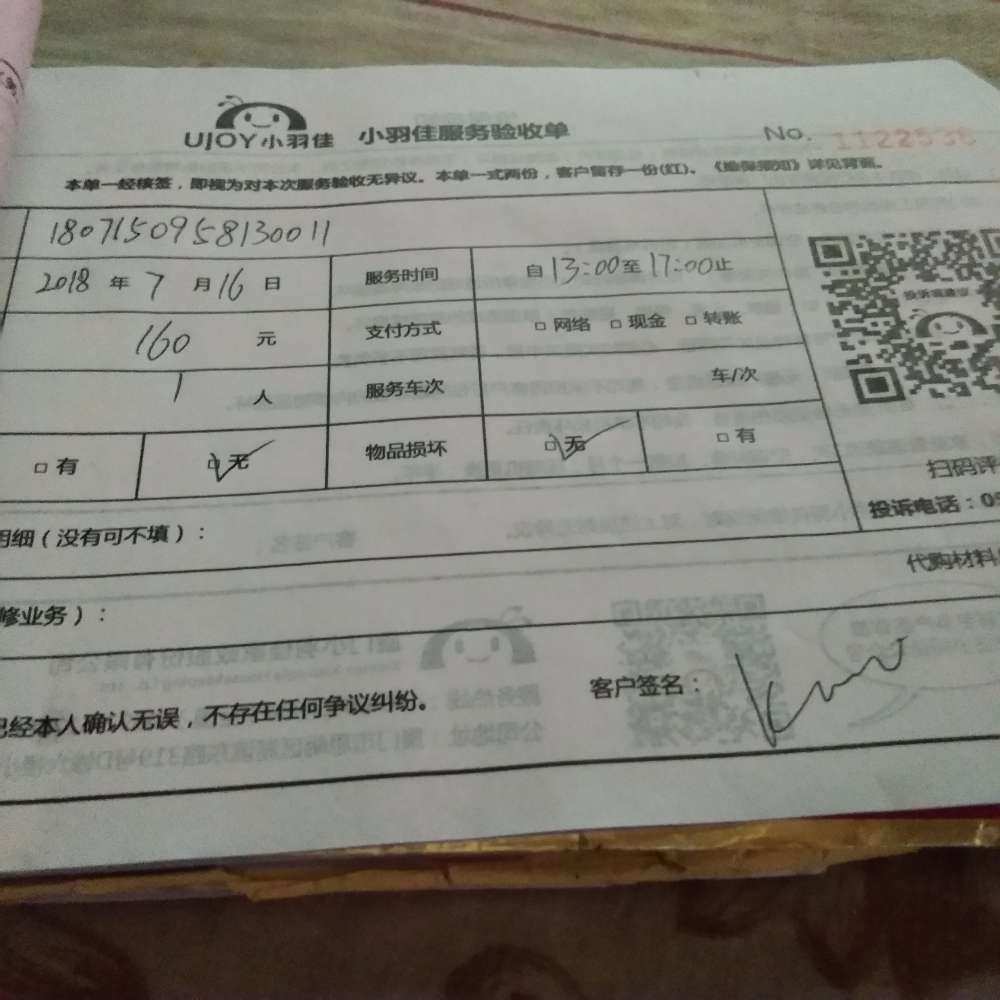 UJOY小羽佳 小羽佳服务验收单 No. 1122536
本单一经核签，即视为对本次服务验收无异议。本单一式两份，客户留存一份(红)。《验保须知》详见背面。
1807150958130011
2018 年 7 月 16 日 服务时间 自 13:00 至 17:00 止
160 元 支付方式 □ 网络 □ 现金 □ 转账
1 人 服务车次 车/次
□ 有 □ 无 物品损坏 □ 无 □ 有
扫码评
明细（没有可不填）： 投诉电话：05
代购材料
修业务）：
已经本人确认无误，不存在任何争议纠纷。 客户签名：